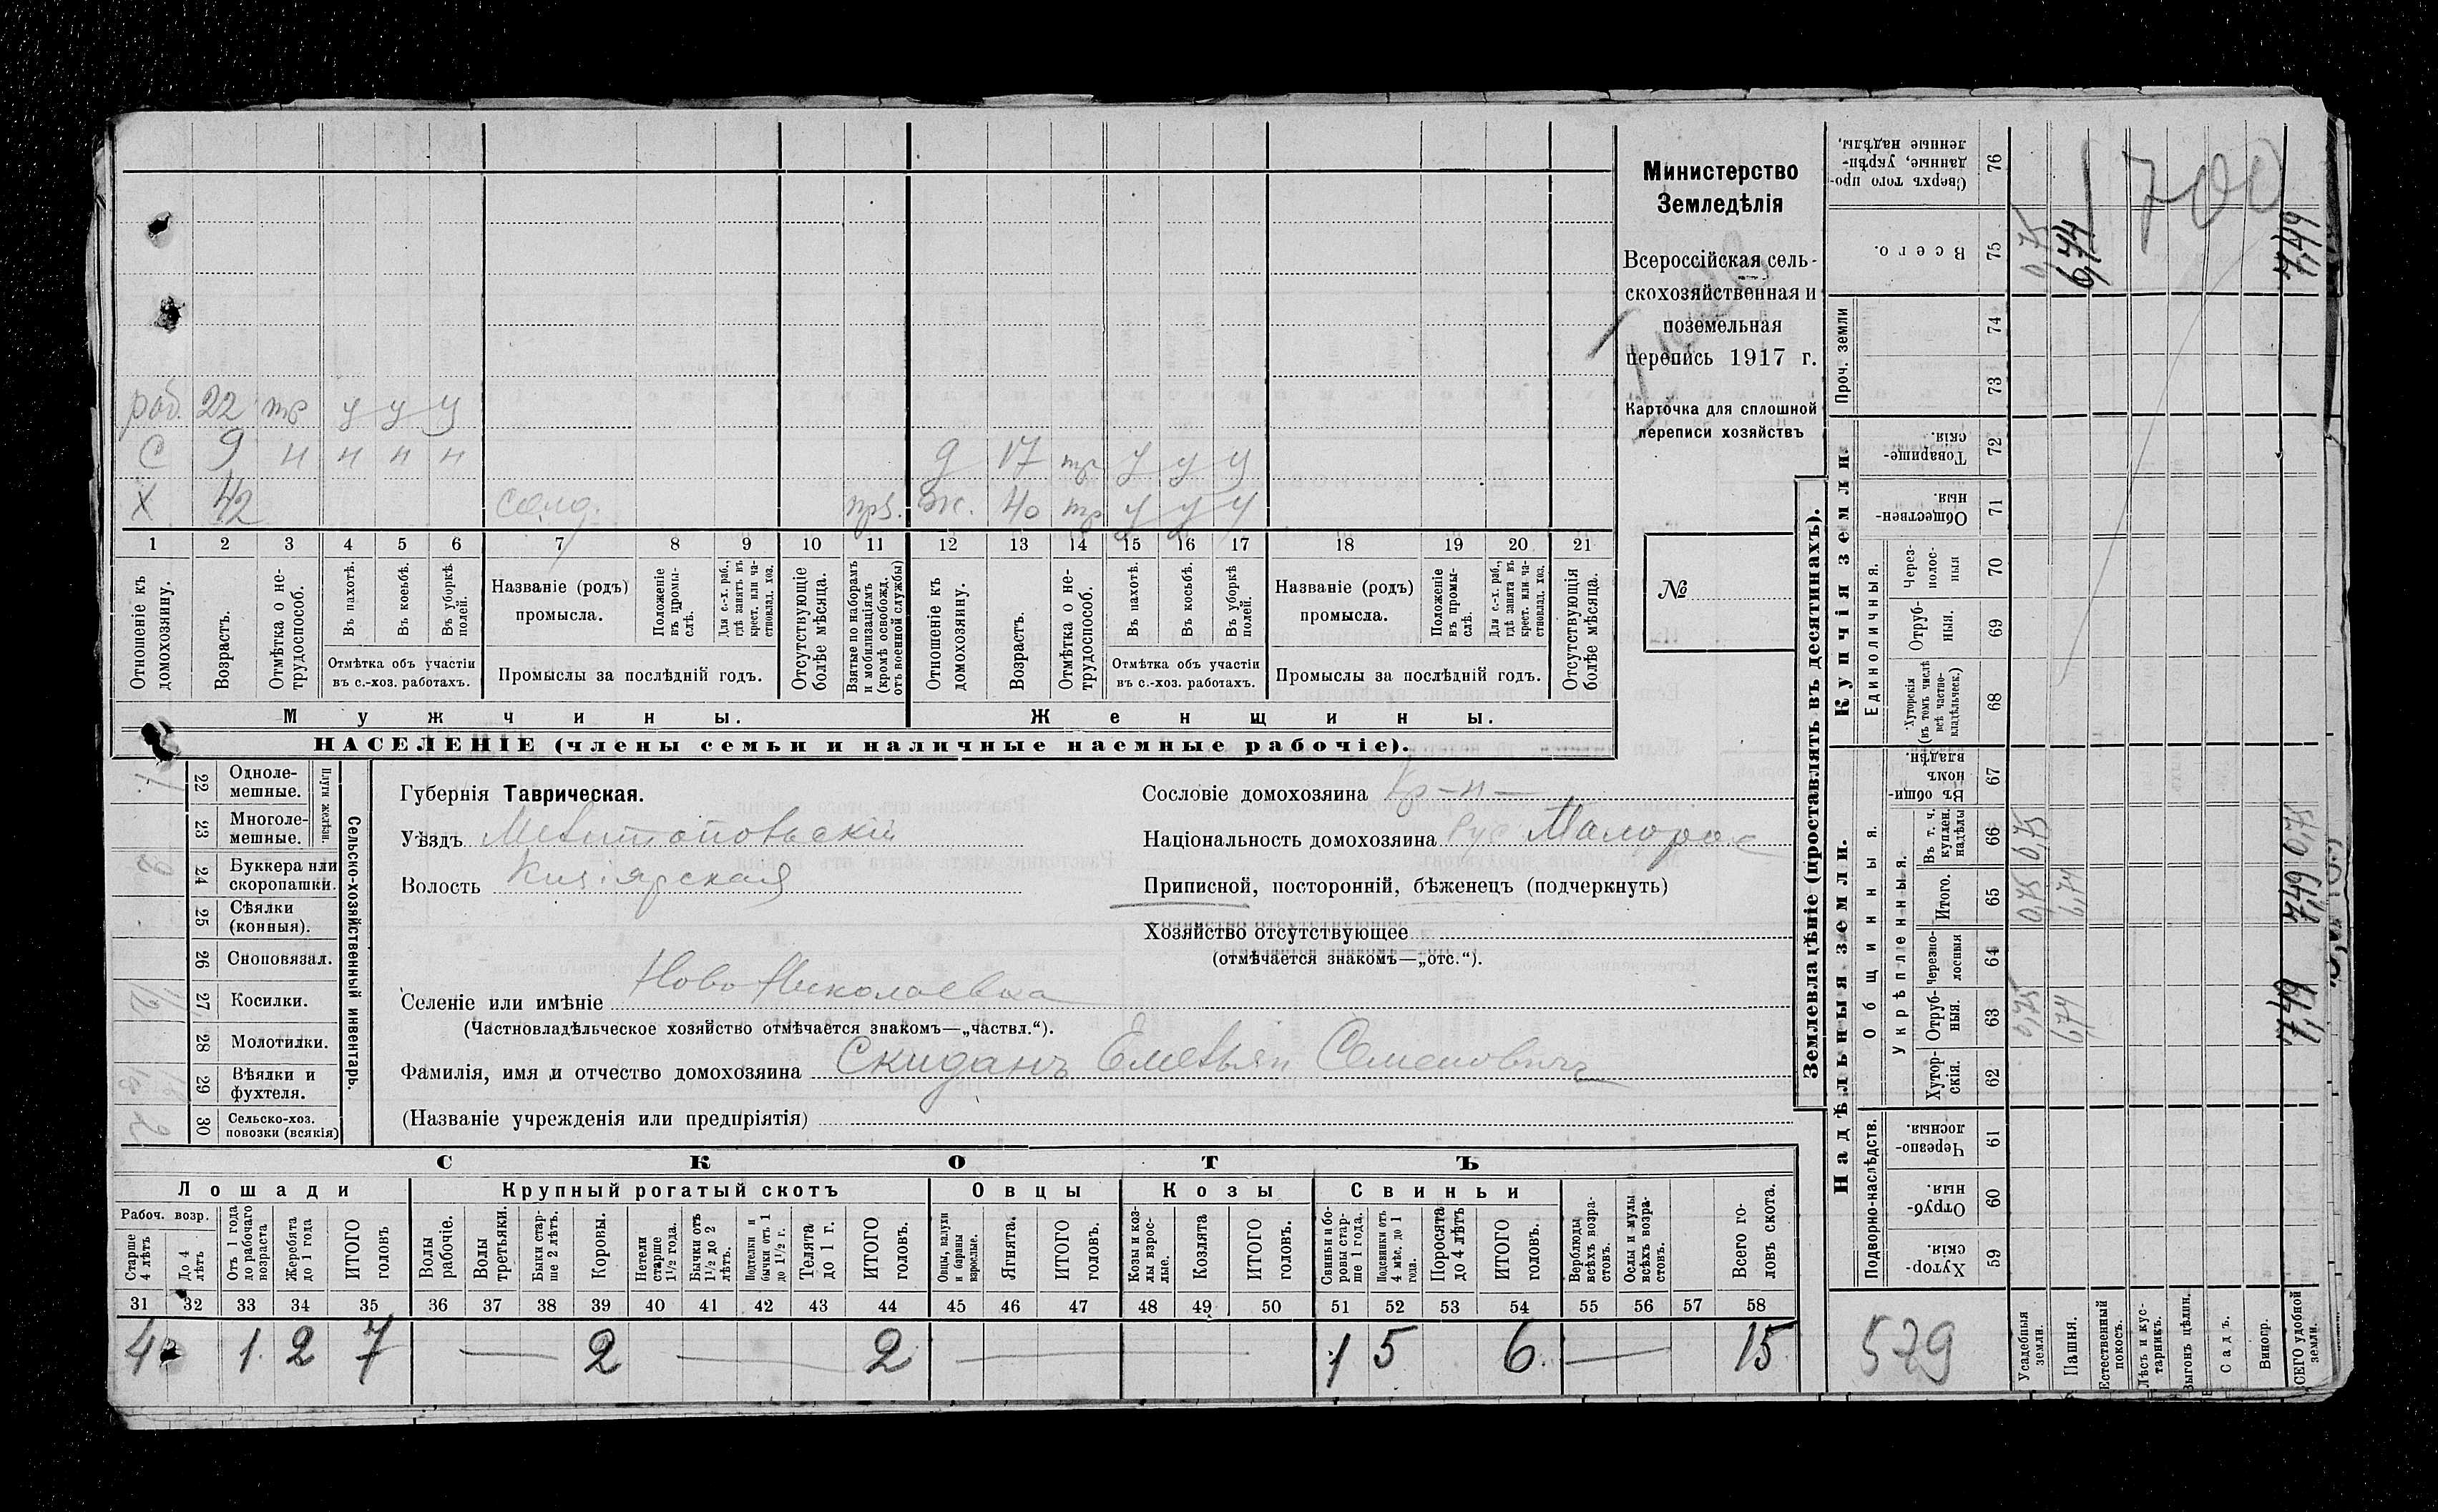 раб. 22 тр у у у
С 9 н н н н
д 17 тр у у у
Х 42 пря.
ж. 40 тр у у у
1 2 3 4 5 6 7 8 9 10 11 12 13 14 15 16 17 18 19 20 21
Отношеніе къ домохозяину.
Возрастъ.
Отмѣтка о не-трудоспособ.
Въ пахотѣ.
Въ косьбѣ.
Въ уборкѣ полей.
Отмѣтка объ участіи
въ с.-хоз. работахъ.
Названіе (родъ)
промысла.
Положеніе въ промы-слѣ.
Для с.-х. раб., гдѣ занятъ въ крест. или ча-ствовлад. хоз.
Промыслы за послѣдній годъ.
Отсутствующіе болѣе мѣсяца.
Взятые по наборамъ и мобилизаціямъ (кромѣ освобожд. отъ военной службы)
Отношеніе къ домохозяину.
Возрастъ.
Отмѣтка о не-трудоспособ.
Въ пахотѣ.
Въ косьбѣ.
Въ уборкѣ полей.
Отмѣтка объ участіи
въ с.-хоз. работахъ.
Названіе (родъ)
промысла.
Положеніе въ промы-слѣ.
Для с.-х. раб., гдѣ занятъ въ крест. или ча-ствовлад. хоз.
Промыслы за послѣдній годъ.
Отсутствующія болѣе мѣсяца.
Мужчины.
Женщины.
НАСЕЛЕНІЕ (члены семьи и наличные наемные рабочіе).
Министерство
Земледѣлія
Всероссійская сель-
скохозяйственная и
поземельная
перепись 1917 г.
Карточка для сплошной
переписи хозяйствъ
№
Сельско-хозяйственный инвентарь.
Плуги желѣзн.
22 Одноле-мешные. 1
23 Многоле-мешные.
24 Буккера или скоропашки. 2
25 Сѣялки (конныя).
26 Сноповязал.
27 Косилки. 1/2
28 Молотилки.
29 Вѣялки и фухтеля.
30 Сельско-хоз. повозки (всякія) 2
Губернія Таврическая.
Уѣздъ Мелитопольскій
Волость Кизіярская
Селеніе или имѣніе Ново Николаевка
(Частновладѣльческое хозяйство отмѣчается знакомъ—„частвл.“).
Фамилія, имя и отчество домохозяина Скиданъ Емельян Семеновичъ
(Названіе учрежденія или предпріятія)
Сословіе домохозяина Кр-н-
Національность домохозяина Рус Малорос
Приписной, посторонній, бѣженецъ (подчеркнуть)
Хозяйство отсутствующее
(отмѣчается знакомъ—„отс.“).
СКОТЪ
Лошади
Крупный рогатый скотъ
Овцы
Козы
Свиньи
Рабоч. возр.
Старше 4 лѣтъ
До 4 лѣтъ
Отъ 1 года до рабочаго возраста
Жеребята до 1 года
ИТОГО головъ
Волы рабочіе.
Волы третьяки.
Быки стар-ше 2 лѣтъ.
Коровы.
Нетели старше 1½ года.
Бычки отъ 1½ до 2 лѣтъ.
Подтелки и бычки отъ 1 до 1½ г.
Телята до 1 г.
ИТОГО головъ.
Овцы, валухи и бараны взрослые.
Ягнята.
ИТОГО головъ.
Козы и коз-лы взрос-лые.
Козлята
ИТОГО головъ.
Свиньи и бо-ровы стар-ше 1 года.
Подсвинки отъ 4 мѣс. до 1 года.
Поросята до 4 лѣтъ
ИТОГО головъ.
Верблюды всѣхъ возра-стовъ.
Ослы и мулы всѣхъ возра-стовъ.
Всего го-ловъ скота.
31 32 33 34 35 36 37 38 39 40 41 42 43 44 45 46 47 48 49 50 51 52 53 54 55 56 57 58
4 1 2 7 — 2 — 2 — 1 5 6 — 15
Землевладѣніе (проставлять въ десятинахъ).
Купчія земли.
Надѣльныя земли.
Сверхъ того про-данные, укрѣп-ленные надѣлы. 76
Всего. 75 0,75 6,74 7,49
1700
Проч. земли 74 73
Товарище-скія. 72
Обществен-ныя. 71
Единоличныя.
Через-полос-ныя 70
Отруб-ныя. 69
Хуторскія (въ томъ числѣ всѣ частно-владѣльческ.) 68
Общинныя.
Въ общи-номъ владѣн. 67
Укрѣпленныя.
Въ т. ч. куплен. надѣлы 66 0,75 0,75
Итого. 65 0,75 6,74 7,49
Черезпо-лосныя 64
Отруб-ныя. 63 0,75 6,74 7,49
Хутор-скія. 62
Подворно-наслѣдств.
Черезпо-лосныя. 61
Отруб-ныя. 60
Хутор-скія. 59
579
Усадебныя земли.
Пашня.
Естественный покосъ.
Лѣсъ и кус-тарникъ.
Выгонъ цѣлин.
Садъ.
Виногр.
ВСЕГО удобной земли.